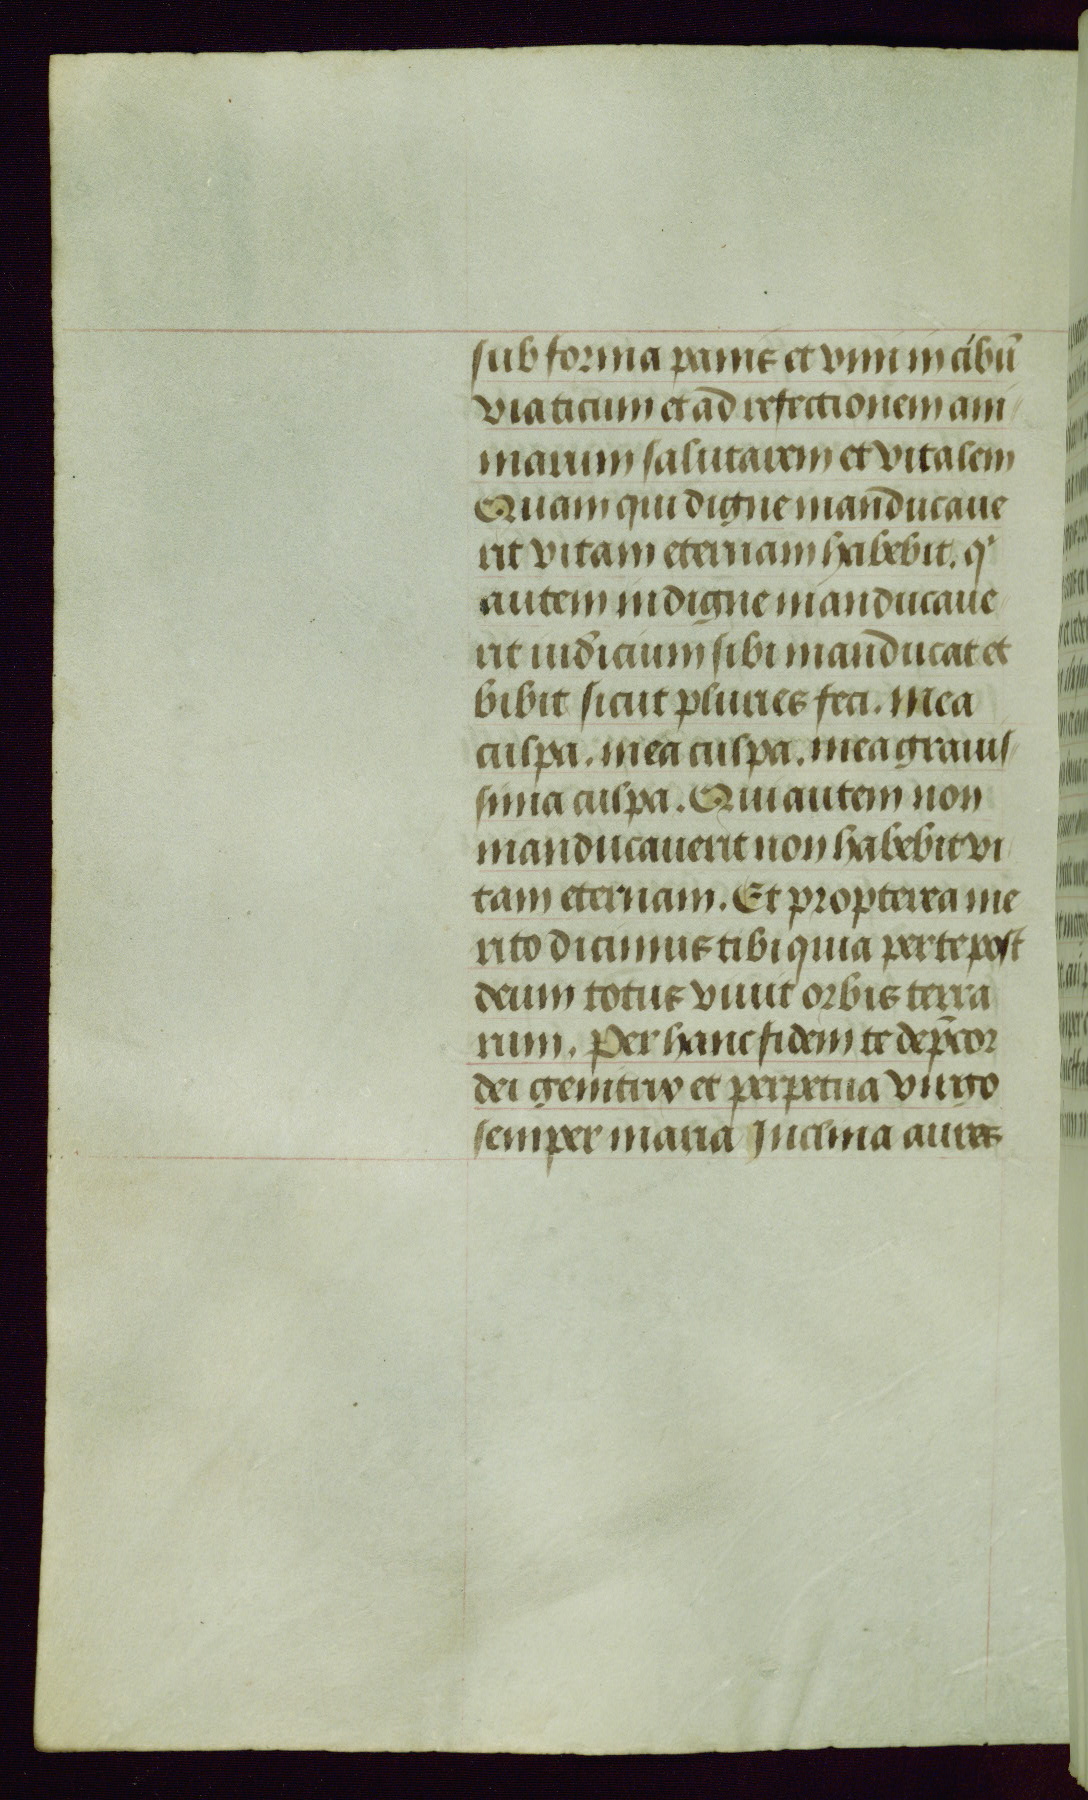 sub forma panis et vini in cibū
viaticum et ad refectionem ani
marum salutarem et vitalem
Quam qui digne manducaue
rit vitam eternam habebit. qⁱ
autem indigne manducaue
rit iudicium sibi manducat et
bibit sicut pluries feci. Mea
culpa. mea culpa. mea grauis
sima culpa. Qui autem non
manducauerit non habebit vi
tam eternam. Et propterea me
rito dicimus tibi quia per te post
deum totus viuit orbis terra
rum. Per hanc fidem te dep̄cor
dei genitrix et perpetua virgo
semper maria Inclina aures